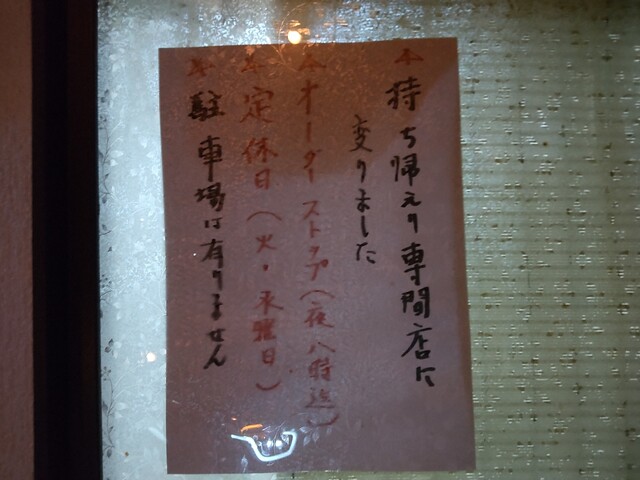 持ち帰えり専間店に
変りました
オーダーストップ(夜八時迄)
定休日(火・水曜日)
駐車場は有りません